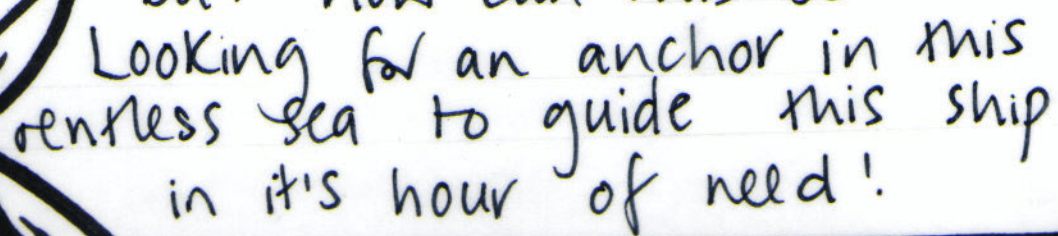 Looking for an anchor in this
rentless sea to guide this ship
in it's hour of need!